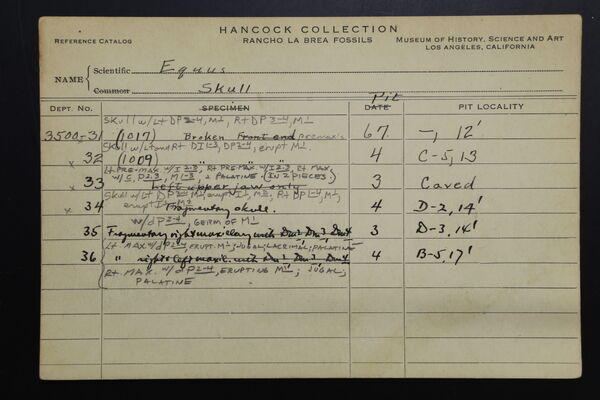 HANCOCK COLLECTION
REFERENCE CATALOG
RANCHO LA BREA FOSSILS
MUSEUM OF HISTORY, SCIENCE AND ART
LOS ANGELES, CALIFORNIA
NAME
Scientific Equus
Common Skull
Pit
DEPT. NO. SPECIMEN DATE PIT LOCALITY
Skull w/Lt DP2-4, M1, Rt DP2-4, M1
3500-31 (1017) Broken Front end premax 67 -, 12'
Skull w/Lt and Rt DI1-3, DP2-4, erupt M1
x 32 (1009) " " " 4 C-5, 13
Lt PRE-MAX w/I2-3, Rt PRE-MAX w/I2-3, Rt MAX,
w/C, P2-3, M1-3, & PALATINE. (IN 2 PIECES.)
x 33 Left upper jaw only 3 Caved
Skull w/Lt DP2-4, M1, erupt I1, M2, Rt DP1-4, M1,
erupt I1, M2
x 34 Fragmentary skull. 4 D-2, 14'
w/dP2-4, GERM OF M1
35 Fragmentary right maxillary with Dm2 Dm3 Dm4 3 D-3, 14'
Lt MAX w/dP2-4, ERUPT. M1; JUGAL; LACRIMAL; PALATINE
36 " right & left maxil. with Dm2 Dm3 Dm4 4 B-5, 17'
Rt. MAX. w/dP2-4, ERUPTING M1; JUGAL;
PALATINE